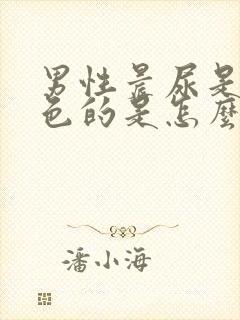 男性晨尿是
色的是怎麼
潘小海